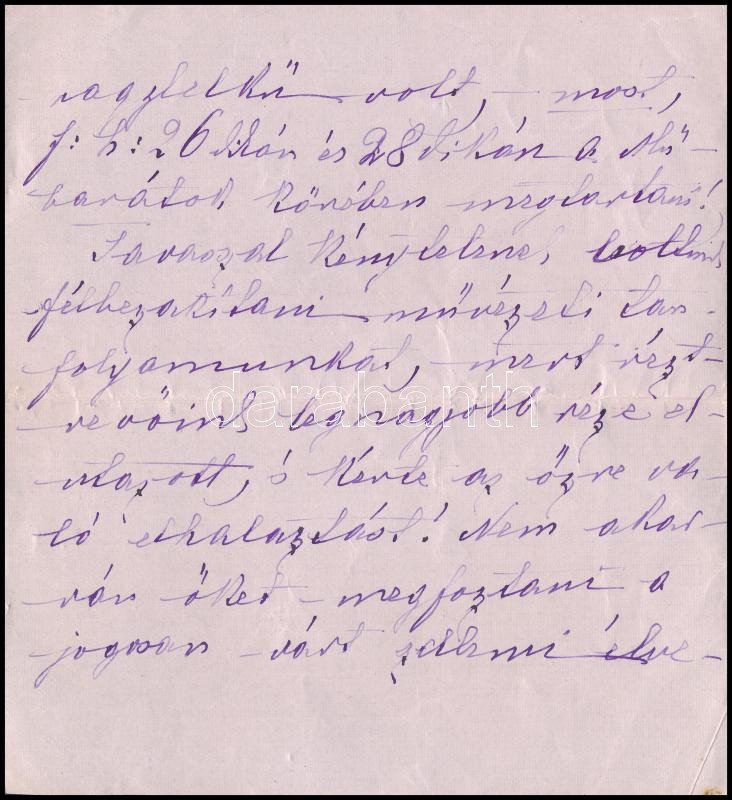 nagylelkű volt, – most,
f: h: 26 ikán és 28 dikán a Mű-
barátok körében megtartani!
Tavaszal kénytelenek voltunk
félbeszakítani művészeti tan-
folyamunkat, – mert részt-
vevőink legnagyobb része el-
utazott, s kérte az őszre va-
ló elhalasztást! Nem akar-
ván őket – megfosztani a
jogosan várt szellemi élve-
darabanth